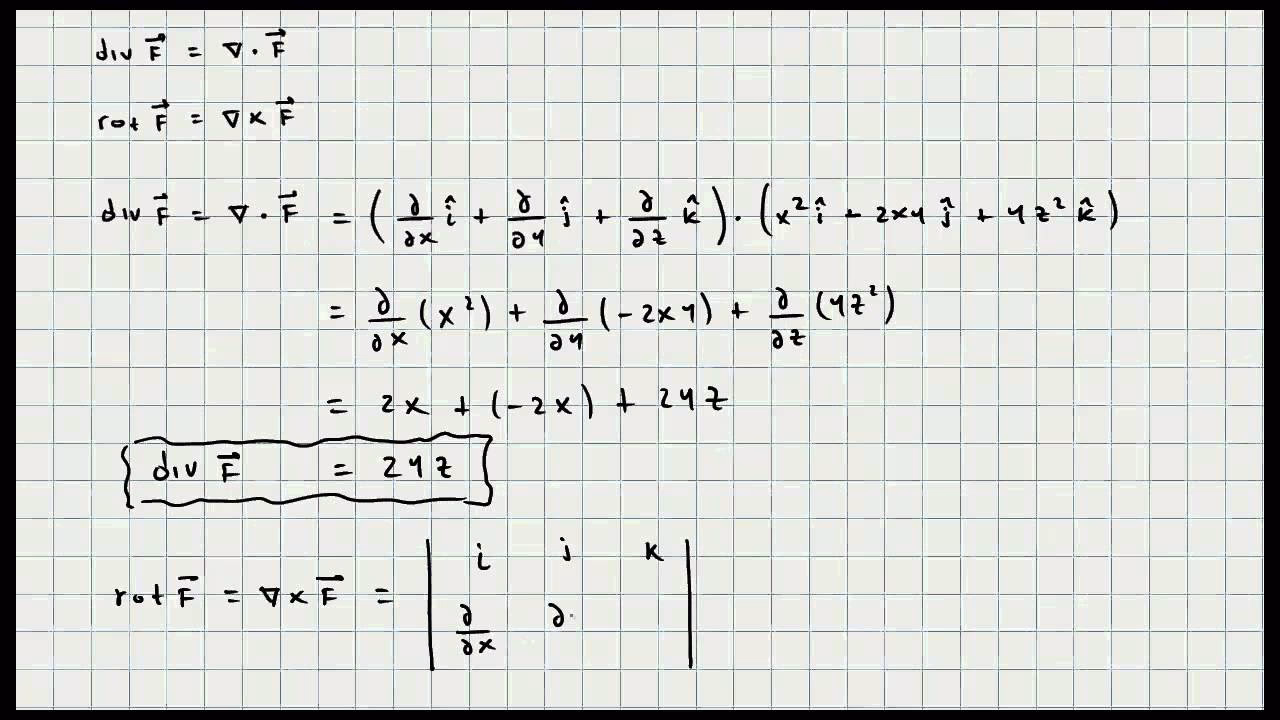 div F⃗ = ∇ · F⃗
rot F⃗ = ∇ × F⃗
div F⃗ = ∇ · F⃗ = (∂/∂x î + ∂/∂y ĵ + ∂/∂z k̂) · (x² î - 2xy ĵ + yz² k̂)
= ∂/∂x (x²) + ∂/∂y (-2xy) + ∂/∂z (yz²)
= 2x + (-2x) + 2yz
div F⃗ = 2yz
rot F⃗ = ∇ × F⃗ = | i j k |
∂/∂x ∂